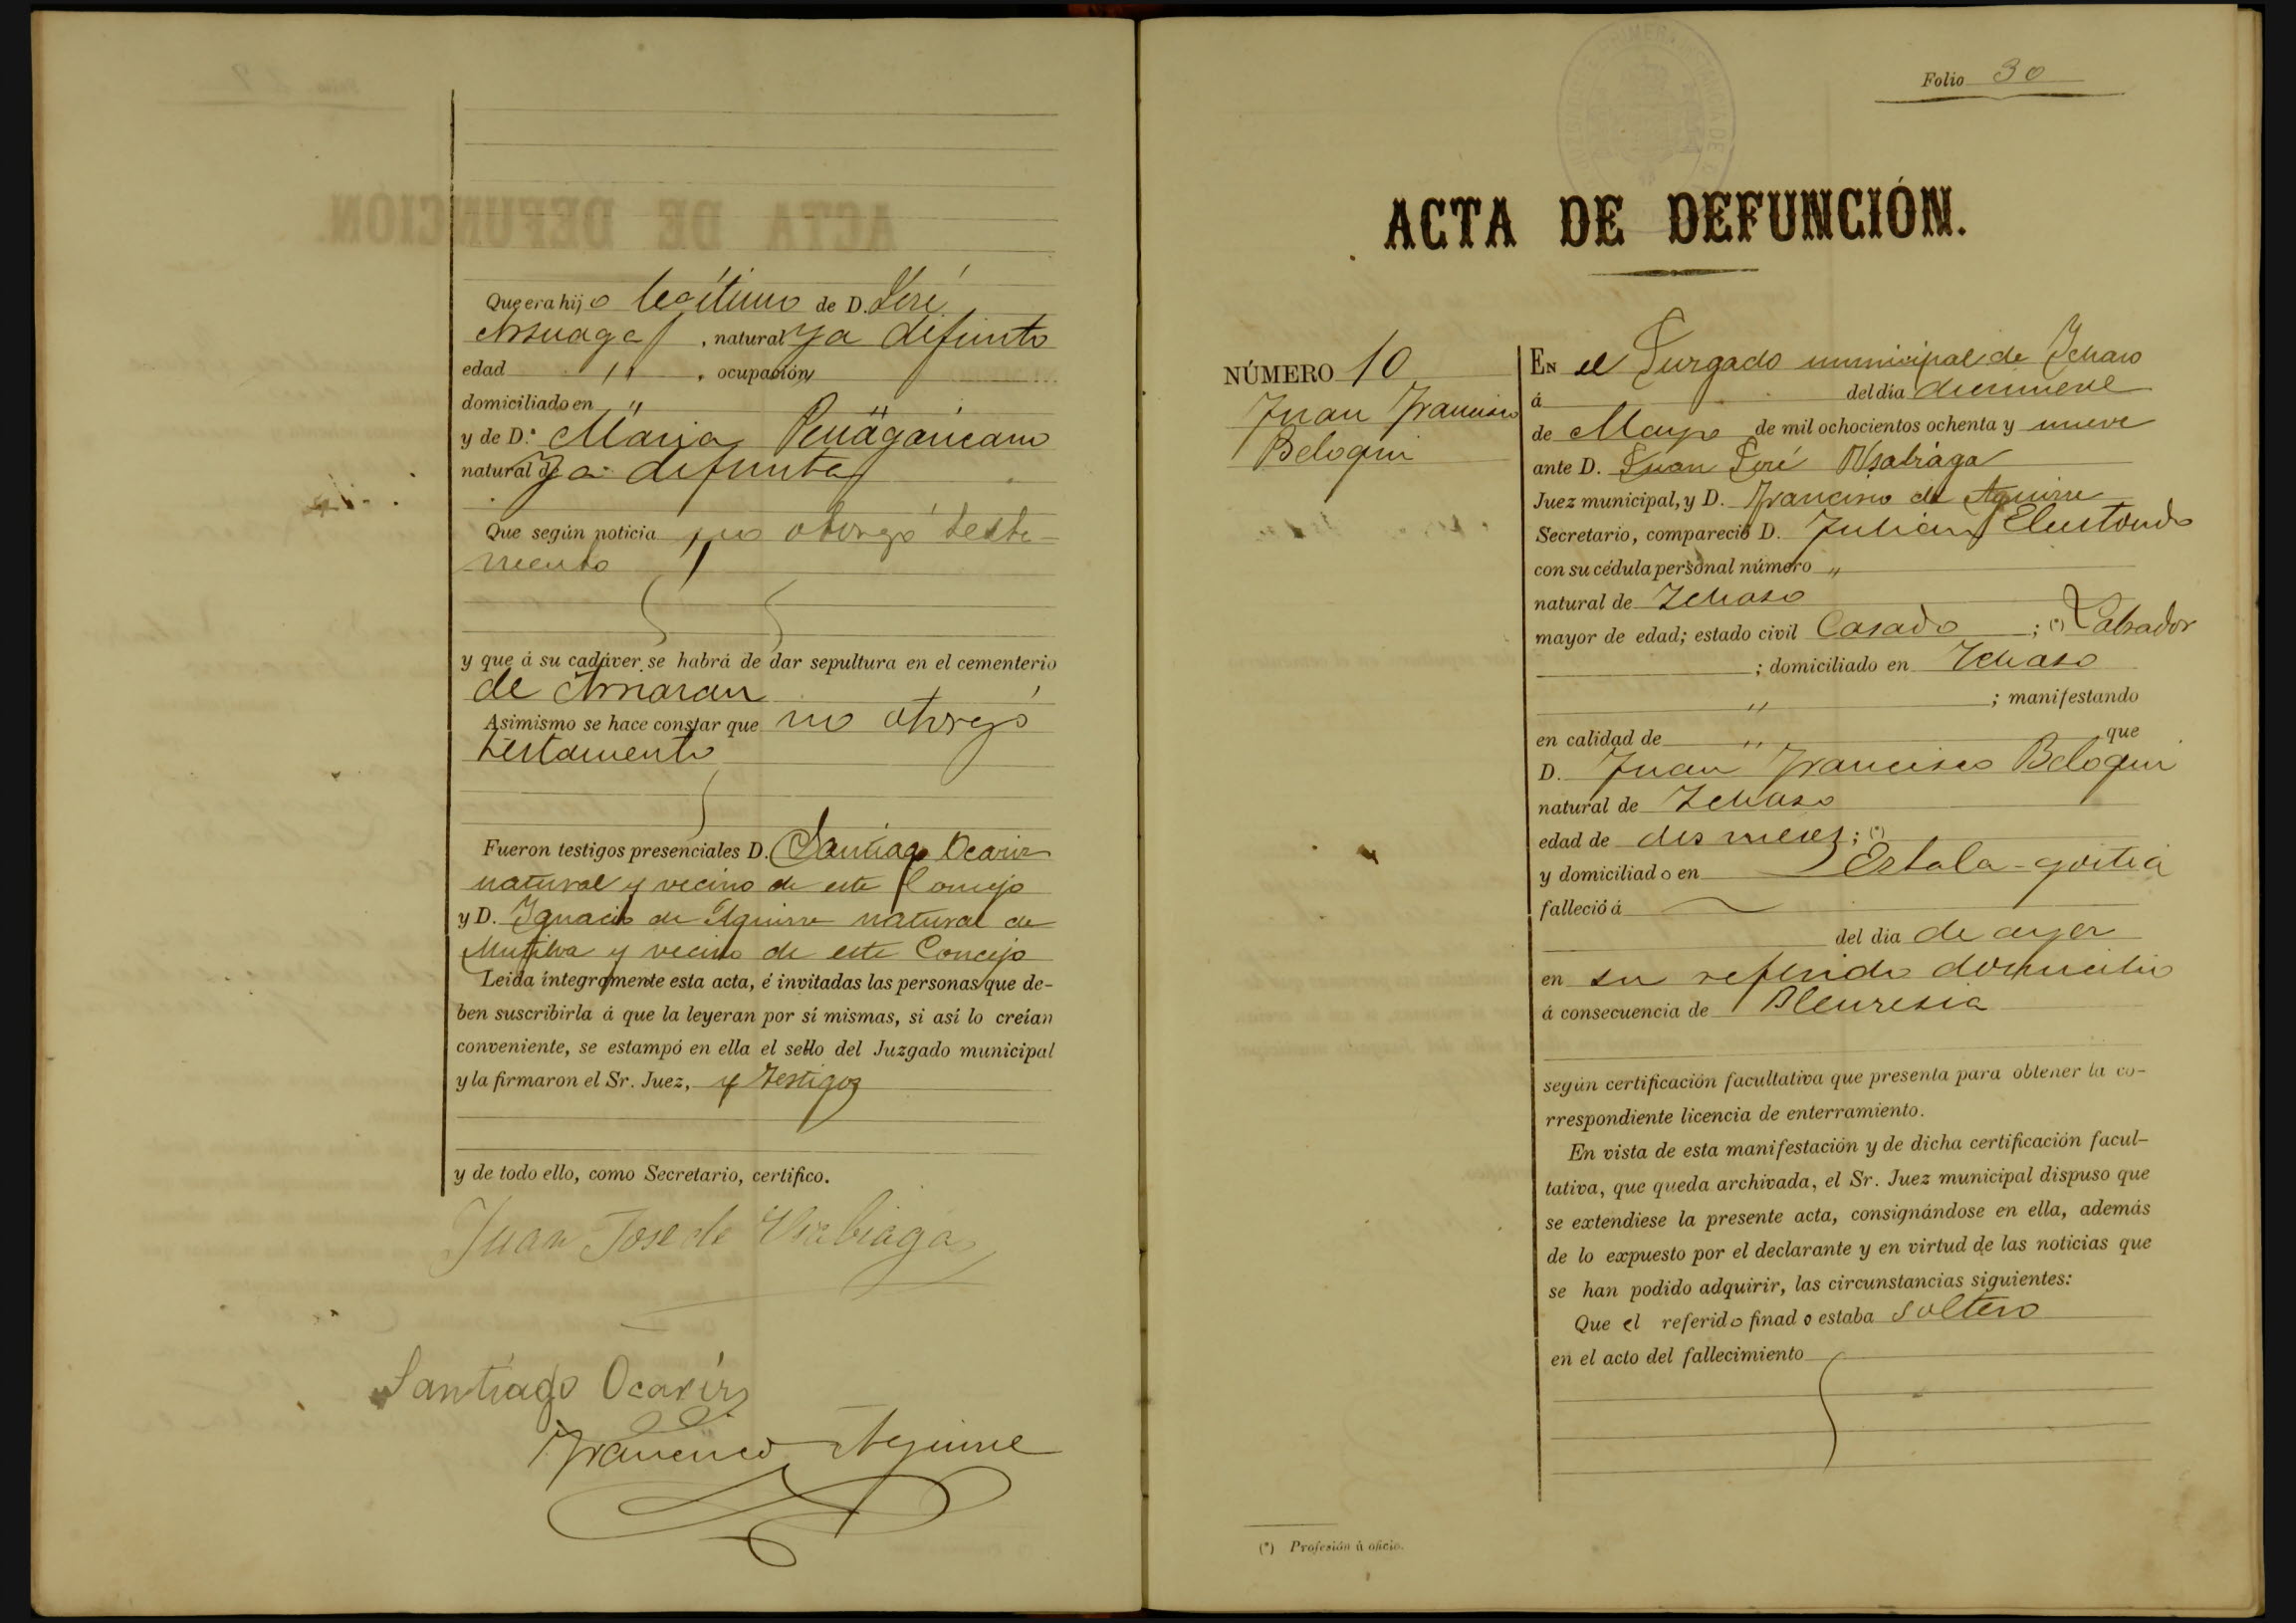 Que era hijo legítimo de D. José
Arsuaga, natural ya difunto
edad " , ocupación
domiciliado en "
y de D.ª Maria Penägaricano
natural de ya difunta
Que según noticia no otorgó testa-
mento
y que á su cadáver se habrá de dar sepultura en el cementerio
de Arnaran
Asimismo se hace constar que no otorgó
testamento
Fueron testigos presenciales D. Santiago Ocariz
natural y vecino de este Concejo
y D. Ignacio de Aguirre natural de
Mutilva y vecino de este Concejo
Leida íntegramente esta acta, é invitadas las personas que de-
ben suscribirla á que la leyeran por sí mismas, si así lo creían
conveniente, se estampó en ella el sello del Juzgado municipal
y la firmaron el Sr. Juez, y testigos
y de todo ello, como Secretario, certifico.
Juan Jose de Usabiaga
Santiago Ocariz
Francisco Aguirre
Folio 30
ACTA DE DEFUNCIÓN.
NÚMERO 10
Juan Francisco
Beloqui
EN el Jurgado municipal de Ichaso
á del día diecinueve
de Mayo de mil ochocientos ochenta y nueve
ante D. Juan José Usabiaga
Juez municipal, y D. Francisco de Aguirre
Secretario, compareció D. Julian Elustondo
con su cédula personal número "
natural de Ichaso
mayor de edad; estado civil Casado ; (*) Labrador
; domiciliado en Ichaso
" ; manifestando
en calidad de " que
D. Juan Francisco Beloqui
natural de Ichaso
edad de dos meses ; (*)
y domiciliado en Estala-goitia
falleció á
del dia de ayer
en su referido domicilio
á consecuencia de Pleuresia
según certificación facultativa que presenta para obtener la co-
rrespondiente licencia de enterramiento.
En vista de esta manifestación y de dicha certificación facul-
tativa, que queda archivada, el Sr. Juez municipal dispuso que
se extendiese la presente acta, consignándose en ella, además
de lo expuesto por el declarante y en virtud de las noticias que
se han podido adquirir, las circunstancias siguientes:
Que el referido finado estaba soltero
en el acto del fallecimiento
(*) Profesión ú oficio.